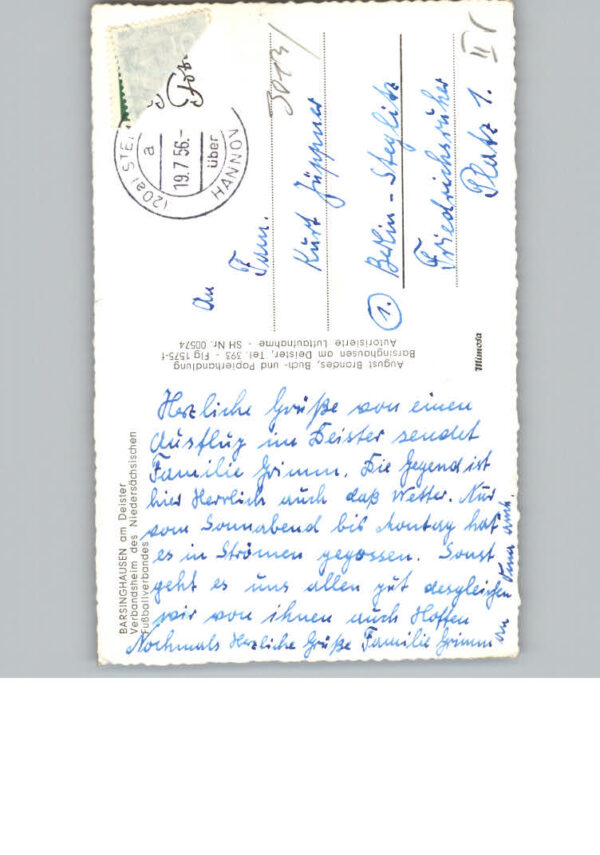 BARSINGHAUSEN am Deister
Verbandsheim des Niedersächsischen
Fußballverbandes
August Brandes, Buch- und Papierhandlung
Barsinghausen am Deister, Tel. 393 - Fig 1575-f
Autorisierte Luftaufnahme - SH Nr. 00574
Mimosa
(20a) STE
a
19.7.56.-
über
HANNOV
3013/
II
An
Fam.
Kurt Jüppner
1. Berlin-Steglitz
Friedrichsruher
Platz 1.
Herzliche Grüße von einen
Ausflug im Deister sendet
Familie Grimm. Die Gegend ist
hier Herrlich auch daß Wetter. Nur
vom Sonnabend bis Montag hat
es in Strömen gegossen. Sonst
geht es uns allen gut desgleichen
wir von ihnen auch Hoffen
Nochmals Herzliche Grüße Familie Grimm